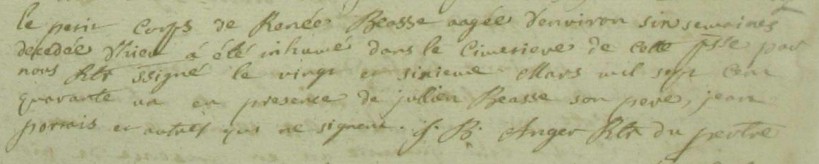 le petit corps de Renée Beasse aagée d'environ six semaines
decedée d'hier a été inhumé dans le Cimetiere de cette psse par
nous Rtr ssigné le vingt et sixieme Mars mil sept cent
quarante un en presence de jullien Beasse son pere, jean
porrais et autres qui ne signent. f. B. Anger Rtr du pertre